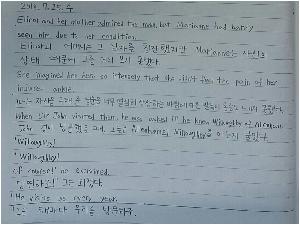 2018. 7. 25. 수
Elinor and her mother admired the man, but Marianne had barely
seen him due to her condition.
Elinor와 어머니는 그 남자를 칭찬했지만 Marianne는 자신의
상태 때문에 그를 거의 보지 못했다.
She imagined her hero so intensely that she didn't feel the pain of her
injured ankle.
그녀는 자신의 영웅을 너무 열심히 상상하는 바람에 다친 발목의 고통을 느끼지 못했다.
When Sir John visited them, he was asked if he knew Willoughby of Allenham.
John 경이 방문했을 때, 그는 Allenham의 Willoughby를 아는지 질문받았다.
"Willoughby!"
"Willoughby!"
Of course! he exclaimed.
그는 외쳤다.
"He visits us every year.
우리를 방문하지요.